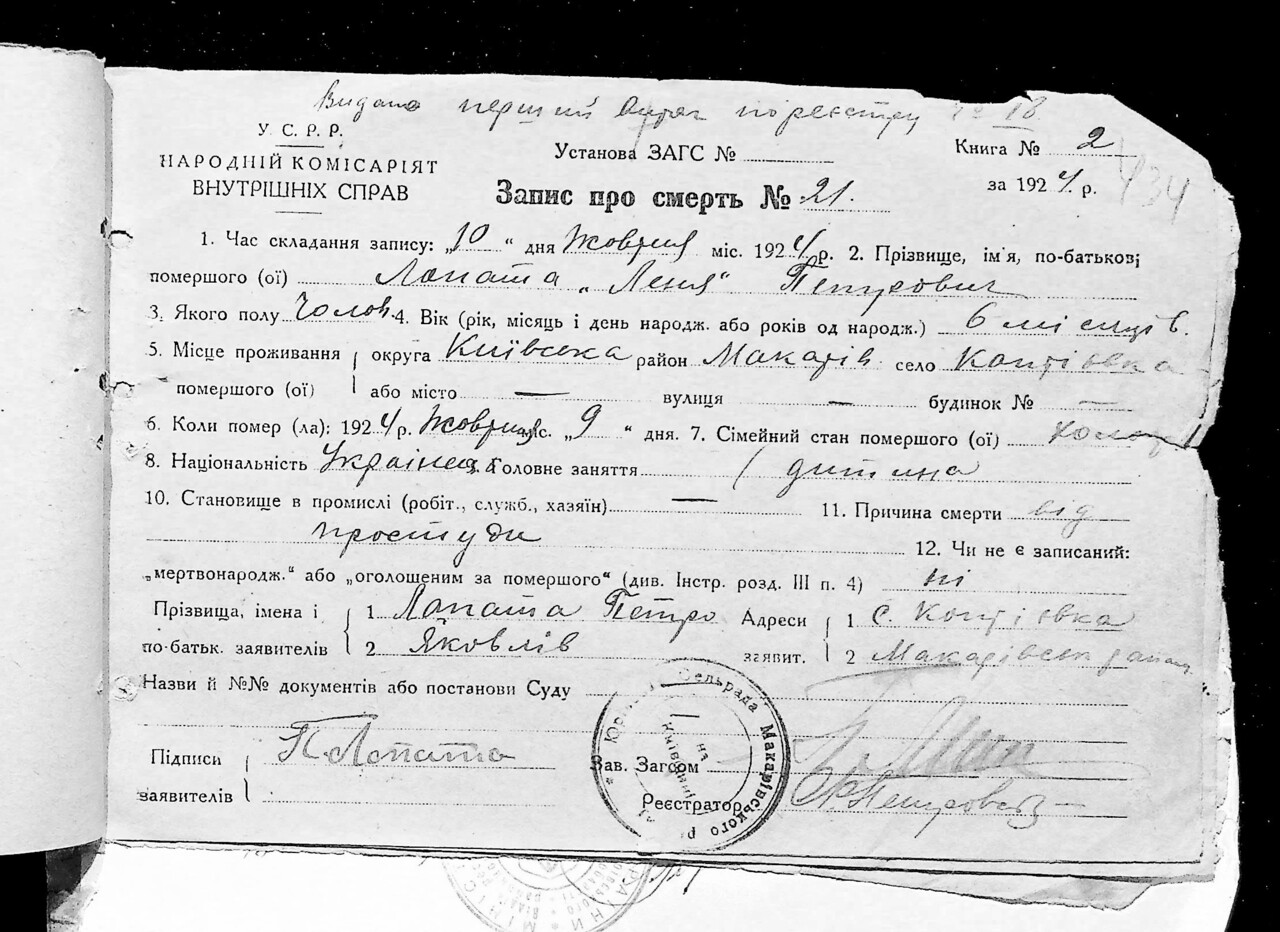 Видано перший витяг по реєстру № 18.
У. С. Р. Р.
НАРОДНІЙ КОМІСАРІЯТ
ВНУТРІШНІХ СПРАВ
Установа ЗАГС №
Книга № 2
за 1924 р.
434
Запис про смерть № 21.
1. Час складання запису: „10“ дня Жовтня міс. 1924 р. 2. Прізвище, ім'я, по-батькові
помершого (ої) Лопата „Леня“ Петрович
3. Якого полу Чолов. 4. Вік (рік, місяць і день народж. або років од народж.) 6 місяців.
5. Місце проживання округа Київська район Макарів село
помершого (ої) або місто — вулиця — будинок № —
6. Коли помер (ла): 1924 р. Жовтня міс. „9“ дня. 7. Сімейний стан помершого (ої)
8. Національність Українец. Головне заняття дитина
10. Становище в промислі (робіт., служб., хазяїн) — 11. Причина смерти від
простуди 12. Чи не є записаний:
„мертвонародж.“ або „оголошеним за помершого“ (див. Інстр. розд. III п. 4) ні
Прізвища, імена і 1 Лопата Петро Адреси 1 с.
по-батьк. заявителів 2 Яковлів заявит. 2 Макарівськ
Назви й №№ документів або постанови Суду
Підписи П Лопата Зав. Загсом
заявителів Реєстратор
Сельрада Макарівського